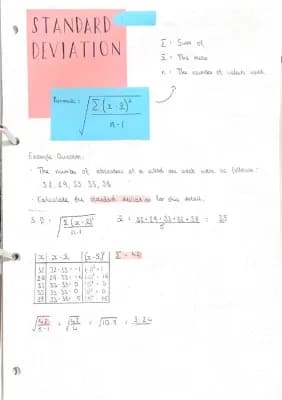 STANDARD
DEVIATION
Σ = Sum of
x̄ = The mean
n = The number of values used.
Formula: √Σ(x - x̄)² / n-1
Example Question:
· The number of at a school one week were as follows:
32, 29, 33, 33, 38
· Calculate the standard deviation for this
S.D. = √Σ(x - x̄)² / n-1 x̄ = 32+29+33+33+38 / 5 = 33
x x-x̄ (x-x̄)² Σ = 42
32 32-33 = -1 (-1)² = 1
29 29-33 = -4 (-4)² = 16
33 33-33 = 0 (0)² = 0
33 33-33 = 0 (0)² = 0
√42 / 5-1 = √42 / 4 = √10.5 = 3.24